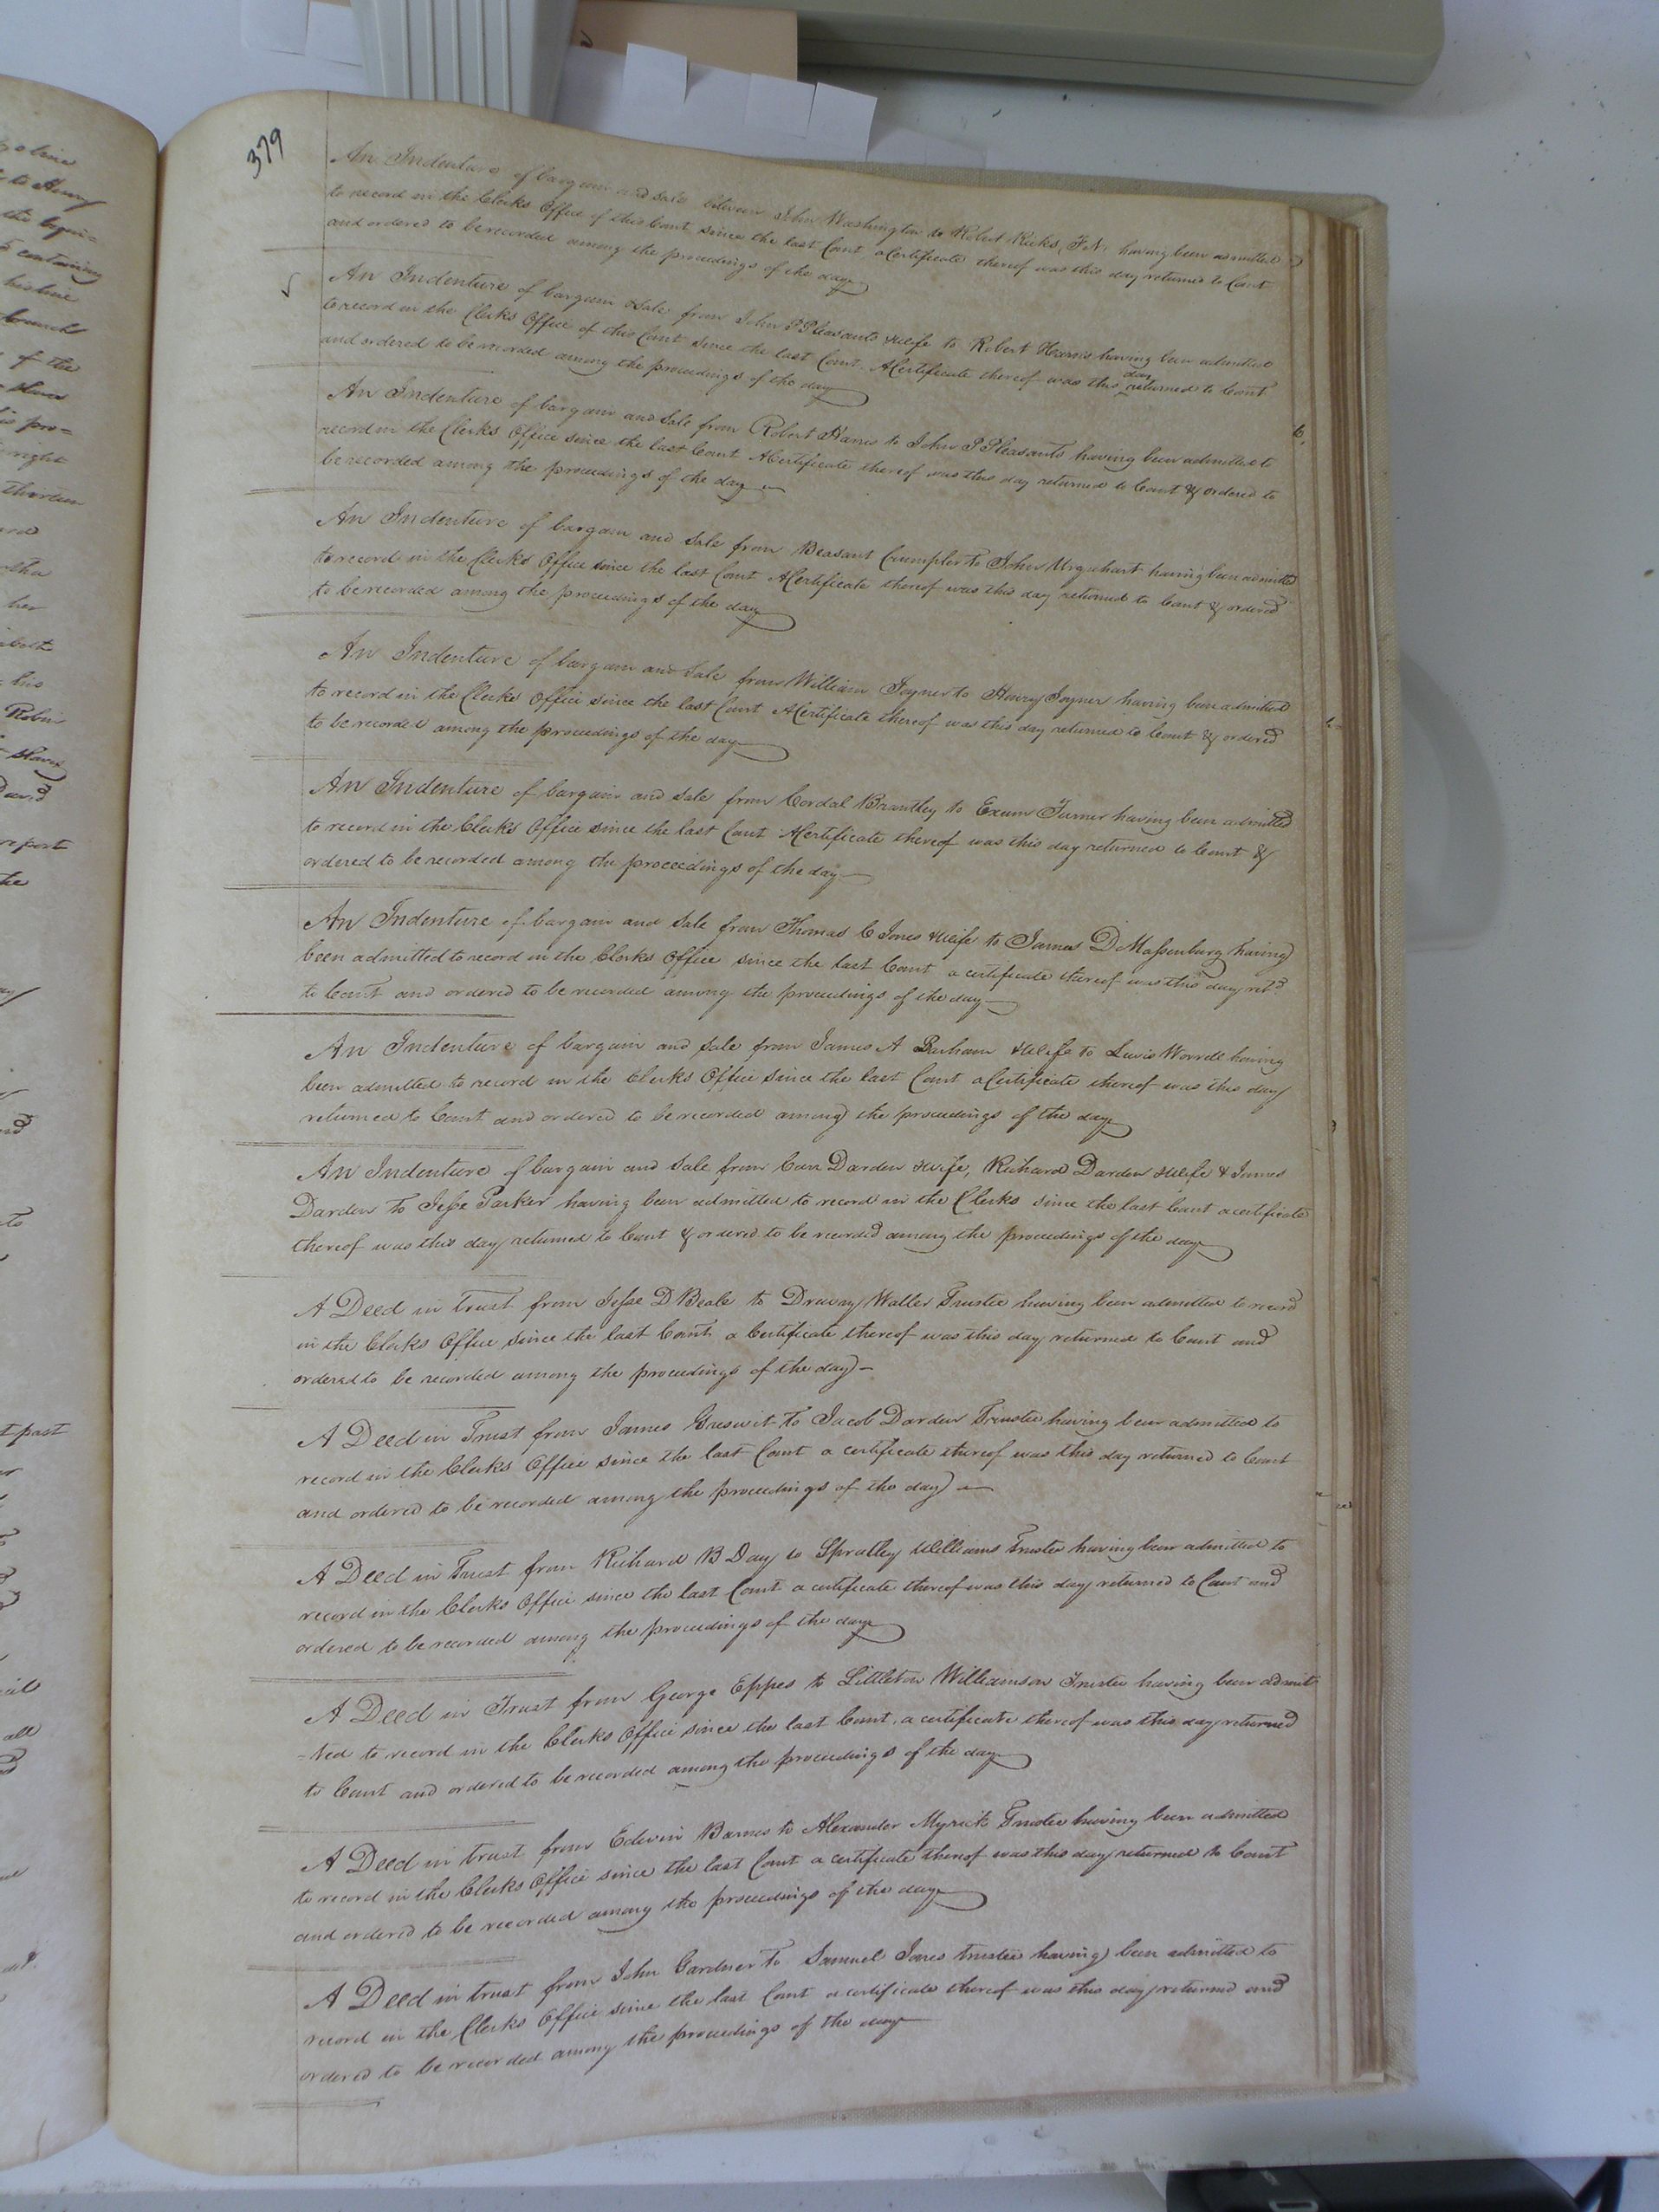 379
An Indenture of bargain and sale between John Washington to Robert Ricks, J.N. having been admitted
to record in the Clerks Office of this Court since the last Court a Certificate thereof was this day returned to Court
and ordered to be recorded among the proceedings of the day
An Indenture of bargain & Sale from John P Pleasants & wife to Robert Harris having been admitted
to record in the Clerks Office of this Court since the last Court. A Certificate thereof was this day returned to Court
and ordered to be recorded among the proceedings of the day
An Indenture of bargain and Sale from Robert Harris to John P Pleasants having been admitted to
record in the Clerks Office since the last Court A Certificate thereof was this day returned to Court & ordered to
be recorded among the proceedings of the day
An Indenture of bargain and Sale from Beasant Crumpler to John Urquhart having been admitted
to record in the Clerks Office since the last Court A Certificate thereof was this day returned to Court & ordered
to be recorded among the proceedings of the day
An Indenture of bargain and Sale from William Joyner to Henry Joyner having been admitted
to record in the Clerks Office since the last Court A Certificate thereof was this day returned to Court & ordered
to be recorded among the proceedings of the day
An Indenture of bargain and Sale from Cordal Brantley to Exum Turner having been admitted
to record in the Clerks Office since the last Court A Certificate thereof was this day returned to Court &
ordered to be recorded among the proceedings of the day
An Indenture of bargain and Sale from Thomas C Jones & wife to James D Massenburg having
been admitted to record in the Clerks Office since the last Court a certificate thereof was this day retd
to Court and ordered to be recorded among the proceedings of the day
An Indenture of bargain and Sale from James A Barham & wife to Lewis Worrell having
been admitted to record in the Clerks Office since the last Court a Certificate thereof was this day
returned to Court and ordered to be recorded among the proceedings of the day
An Indenture of bargain and Sale from Carr Darden & wife, Richard Darden & wife & James
Darden to Jesse Parker having been admitted to record in the Clerks since the last Court a certificate
thereof was this day returned to Court & ordered to be recorded among the proceedings of the day
A Deed in trust from Jesse D Beale to Druary Walter Trustee having been admitted to record
in the Clerks Office since the last Court a Certificate thereof was this day returned to Court and
ordered to be recorded among the proceedings of the day
A Deed in Trust from James Greswit to Jacob Darden Trustee having been admitted to
record in the Clerks Office since the last Court a certificate thereof was this day returned to Court
and ordered to be recorded among the proceedings of the day
A Deed in Trust from Richard B Day to Spratley Williams Trustee having been admitted to
record in the Clerks Office since the last Court a certificate thereof was this day returned to Court and
ordered to be recorded among the proceedings of the day
A Deed in Trust from George Eppes to Littleton Williamson Trustee having been admit
=ted to record in the Clerks Office since the last Court, a certificate thereof was this day returned
to Court and ordered to be recorded among the proceedings of the day
A Deed in trust from Edwin Barnes to Alexander Myrick Trustee having been admitted
to record in the Clerks Office since the last Court a certificate thereof was this day returned to Court
and ordered to be recorded among the proceedings of the day
A Deed in trust from John Gardner to Samuel Jones trustee having been admitted to
record in the Clerks Office since the last Court a certificate thereof was this day returned and
ordered to be recorded among the proceedings of the day